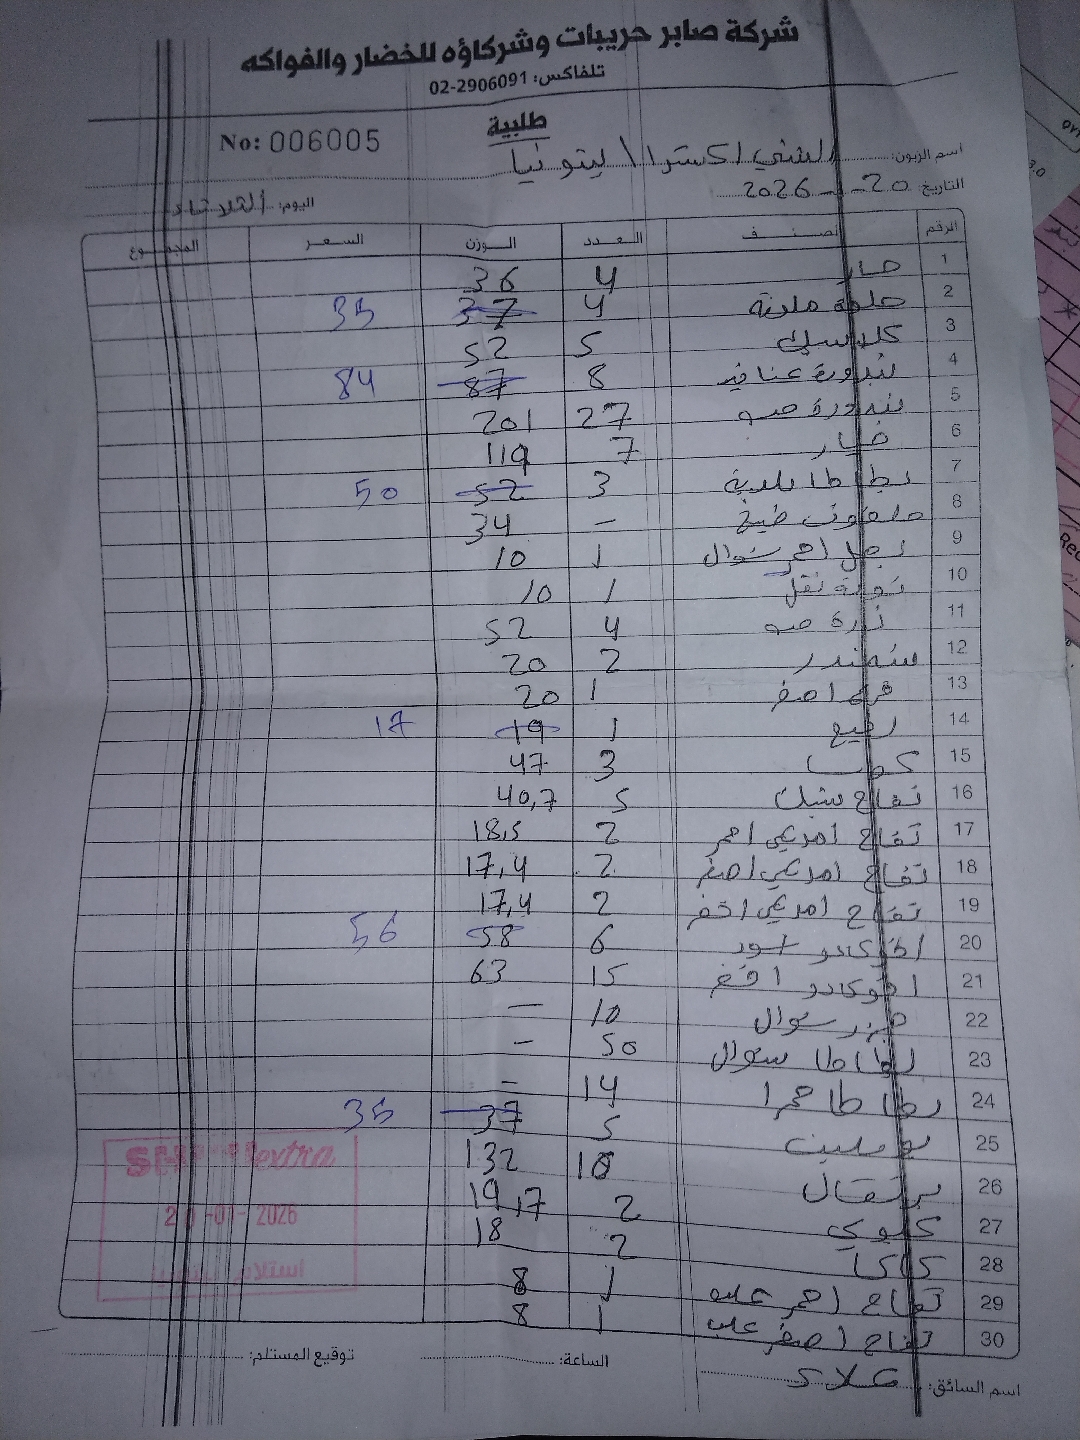 شركة صابر حريبات وشركاؤه للخضار والفواكه
تلفاكس: 02-2906091
طلبية
No: 006005
اسم الزبون: الشني اكسترا \\ بيتونيا
التاريخ 20-1-2026
اليوم: الثلاثاء
الرقم الصنف العدد الوزن السعر المجموع
1 خيار 4 36
2 حلوة ملونة 4 37 35
3 كلاسيك 5 52
4 بندورة عناقيد 8 87 84
5 بندورة حبه 27 201
6 خيار 7 119
7 بطاطا بلدية 3 52 50
8 ملفوف طبيخ - 34
9 بصل احمر شوال 1 10
10 نقل 1 10
11 ذرة حبه 4 52
12 شمندر 2 20
13 اصفر 1 20
14 1 19 17
15 كوسا 3 47
16 تفاح سبيشل 5 40,7
17 تفاح امريكي احمر 2 18,5
18 تفاح امريكي اصفر 2 17,4
19 تفاح امريكي اخضر 2 17,4
20 افوكادو اسود 6 58 56
21 افوكادو اخضر 15 63
22 جزر شوال 10 -
23 بطاطا شوال 50 -
24 بطاطا حمرا 14 -
25 بوملي 5 37 35
26 برتقال 10 132
27 كيوي 2 19,17
28 كاكا 2 18
29 تفاح احمر علب 1 8
30 تفاح اصفر علب 1 8
extra
2 -01- 2026
استلام
اسم السائق: علاء
الساعة:
توقيع المستلم: